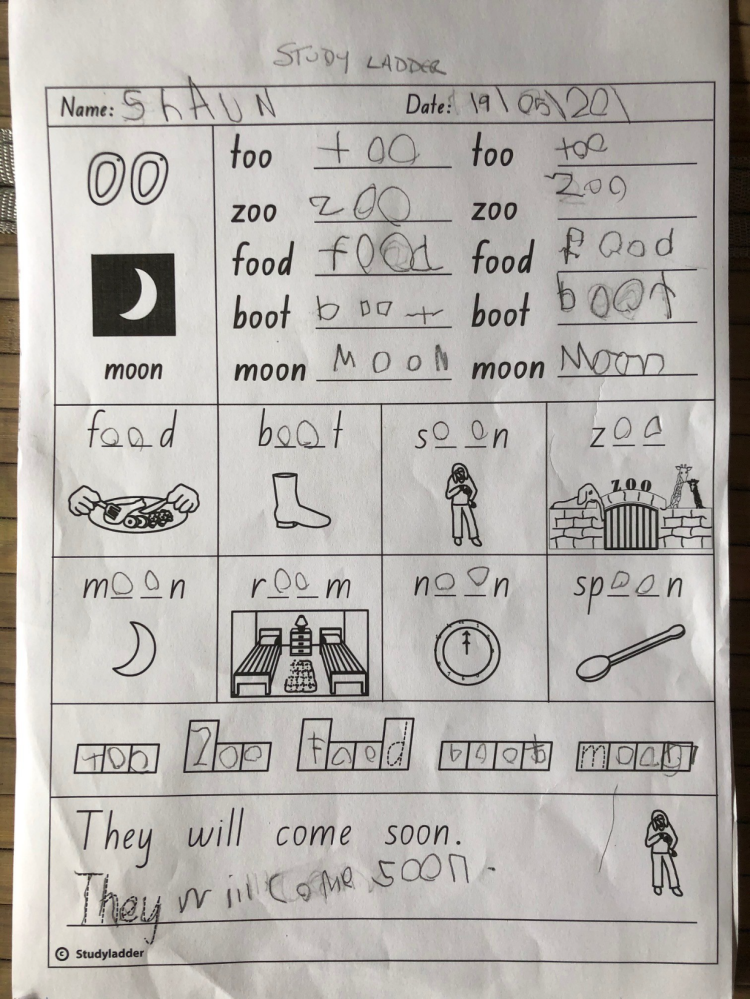 STUDY LADDER
Name: ShAUN Date: 19\05\20\
oo too too too too
zoo zoo zoo zoo
food food food food
boot boot boot boot
moon MOON moon Moon
moon
food boot soon zoo
ZOO
moon room noon spoon
too Zoo food boot moon
They will come soon.
They will come soon.
© Studyladder